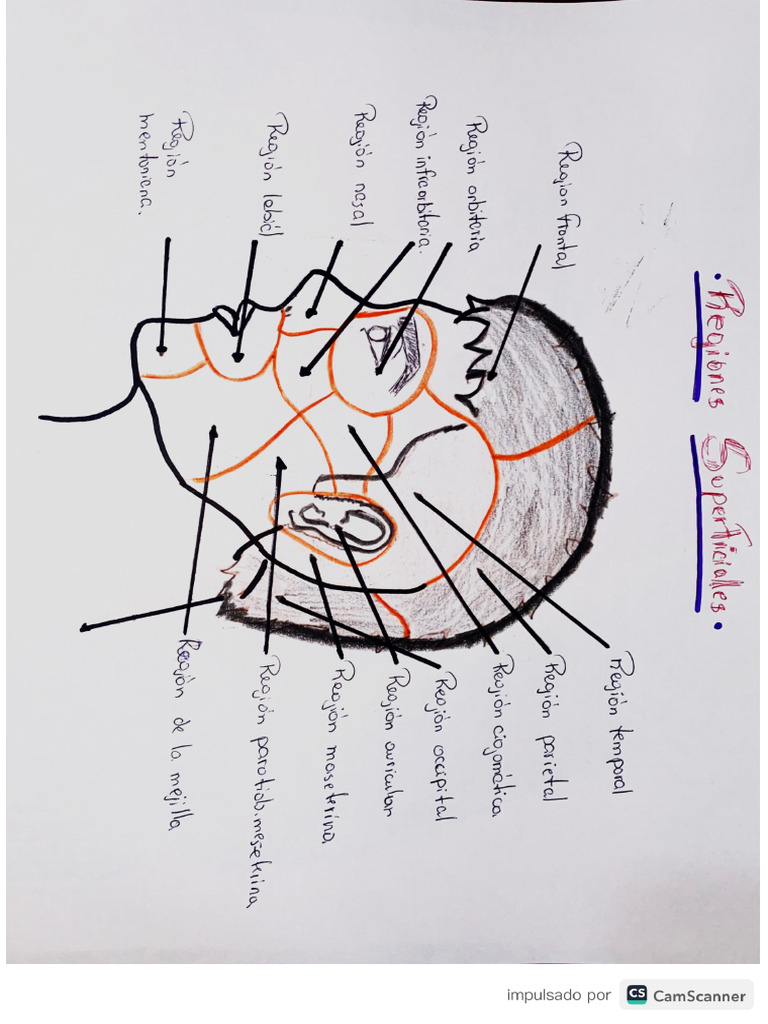 • Regiones Superficialles •
Region frontal
Región orbitaria
Región infraorbitaria.
Región nasal
Región labial
Región
mentoniana.
Región temporal
Región parietal
Región cigomática
Región occipital
Región auricular
Región maseterina
Región parotid.meseterina
Región de la mejilla
impulsado por CS CamScanner